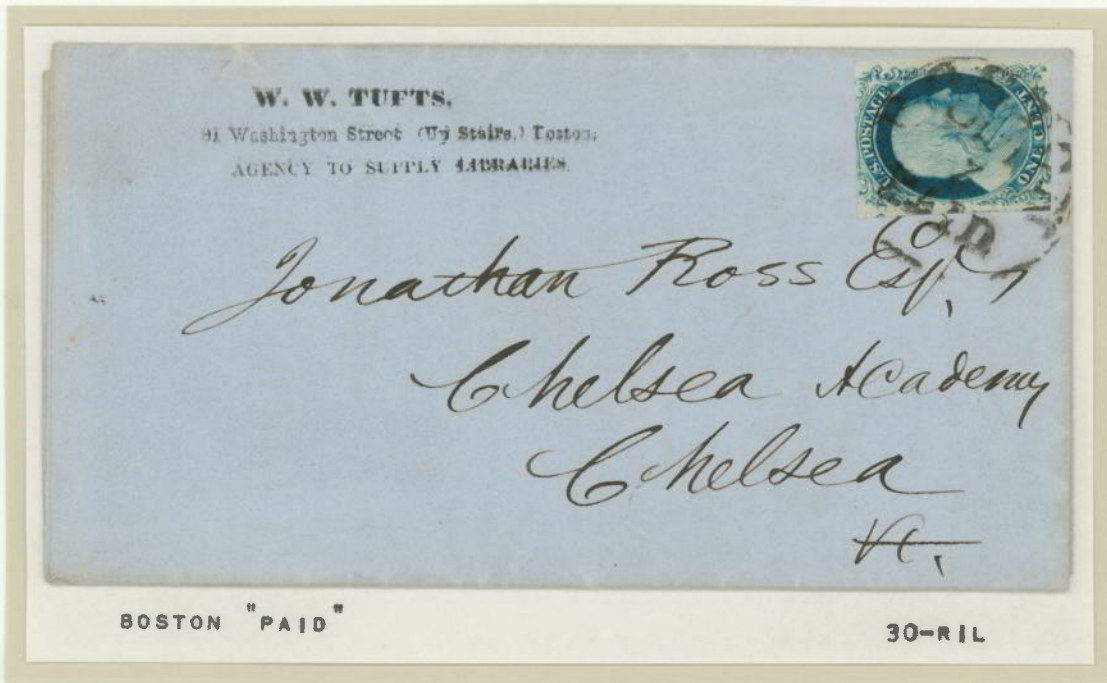 W. W. TUFTS,
91 Washington Street (Up Stairs,) Boston,
AGENCY TO SUPPLY LIBRARIES.
U.S. POSTAGE
ONE CENT
PAID
Jonathan Ross Esq.,
Chelsea Academy
Chelsea
Vt.
BOSTON "PAID"
30-R1L